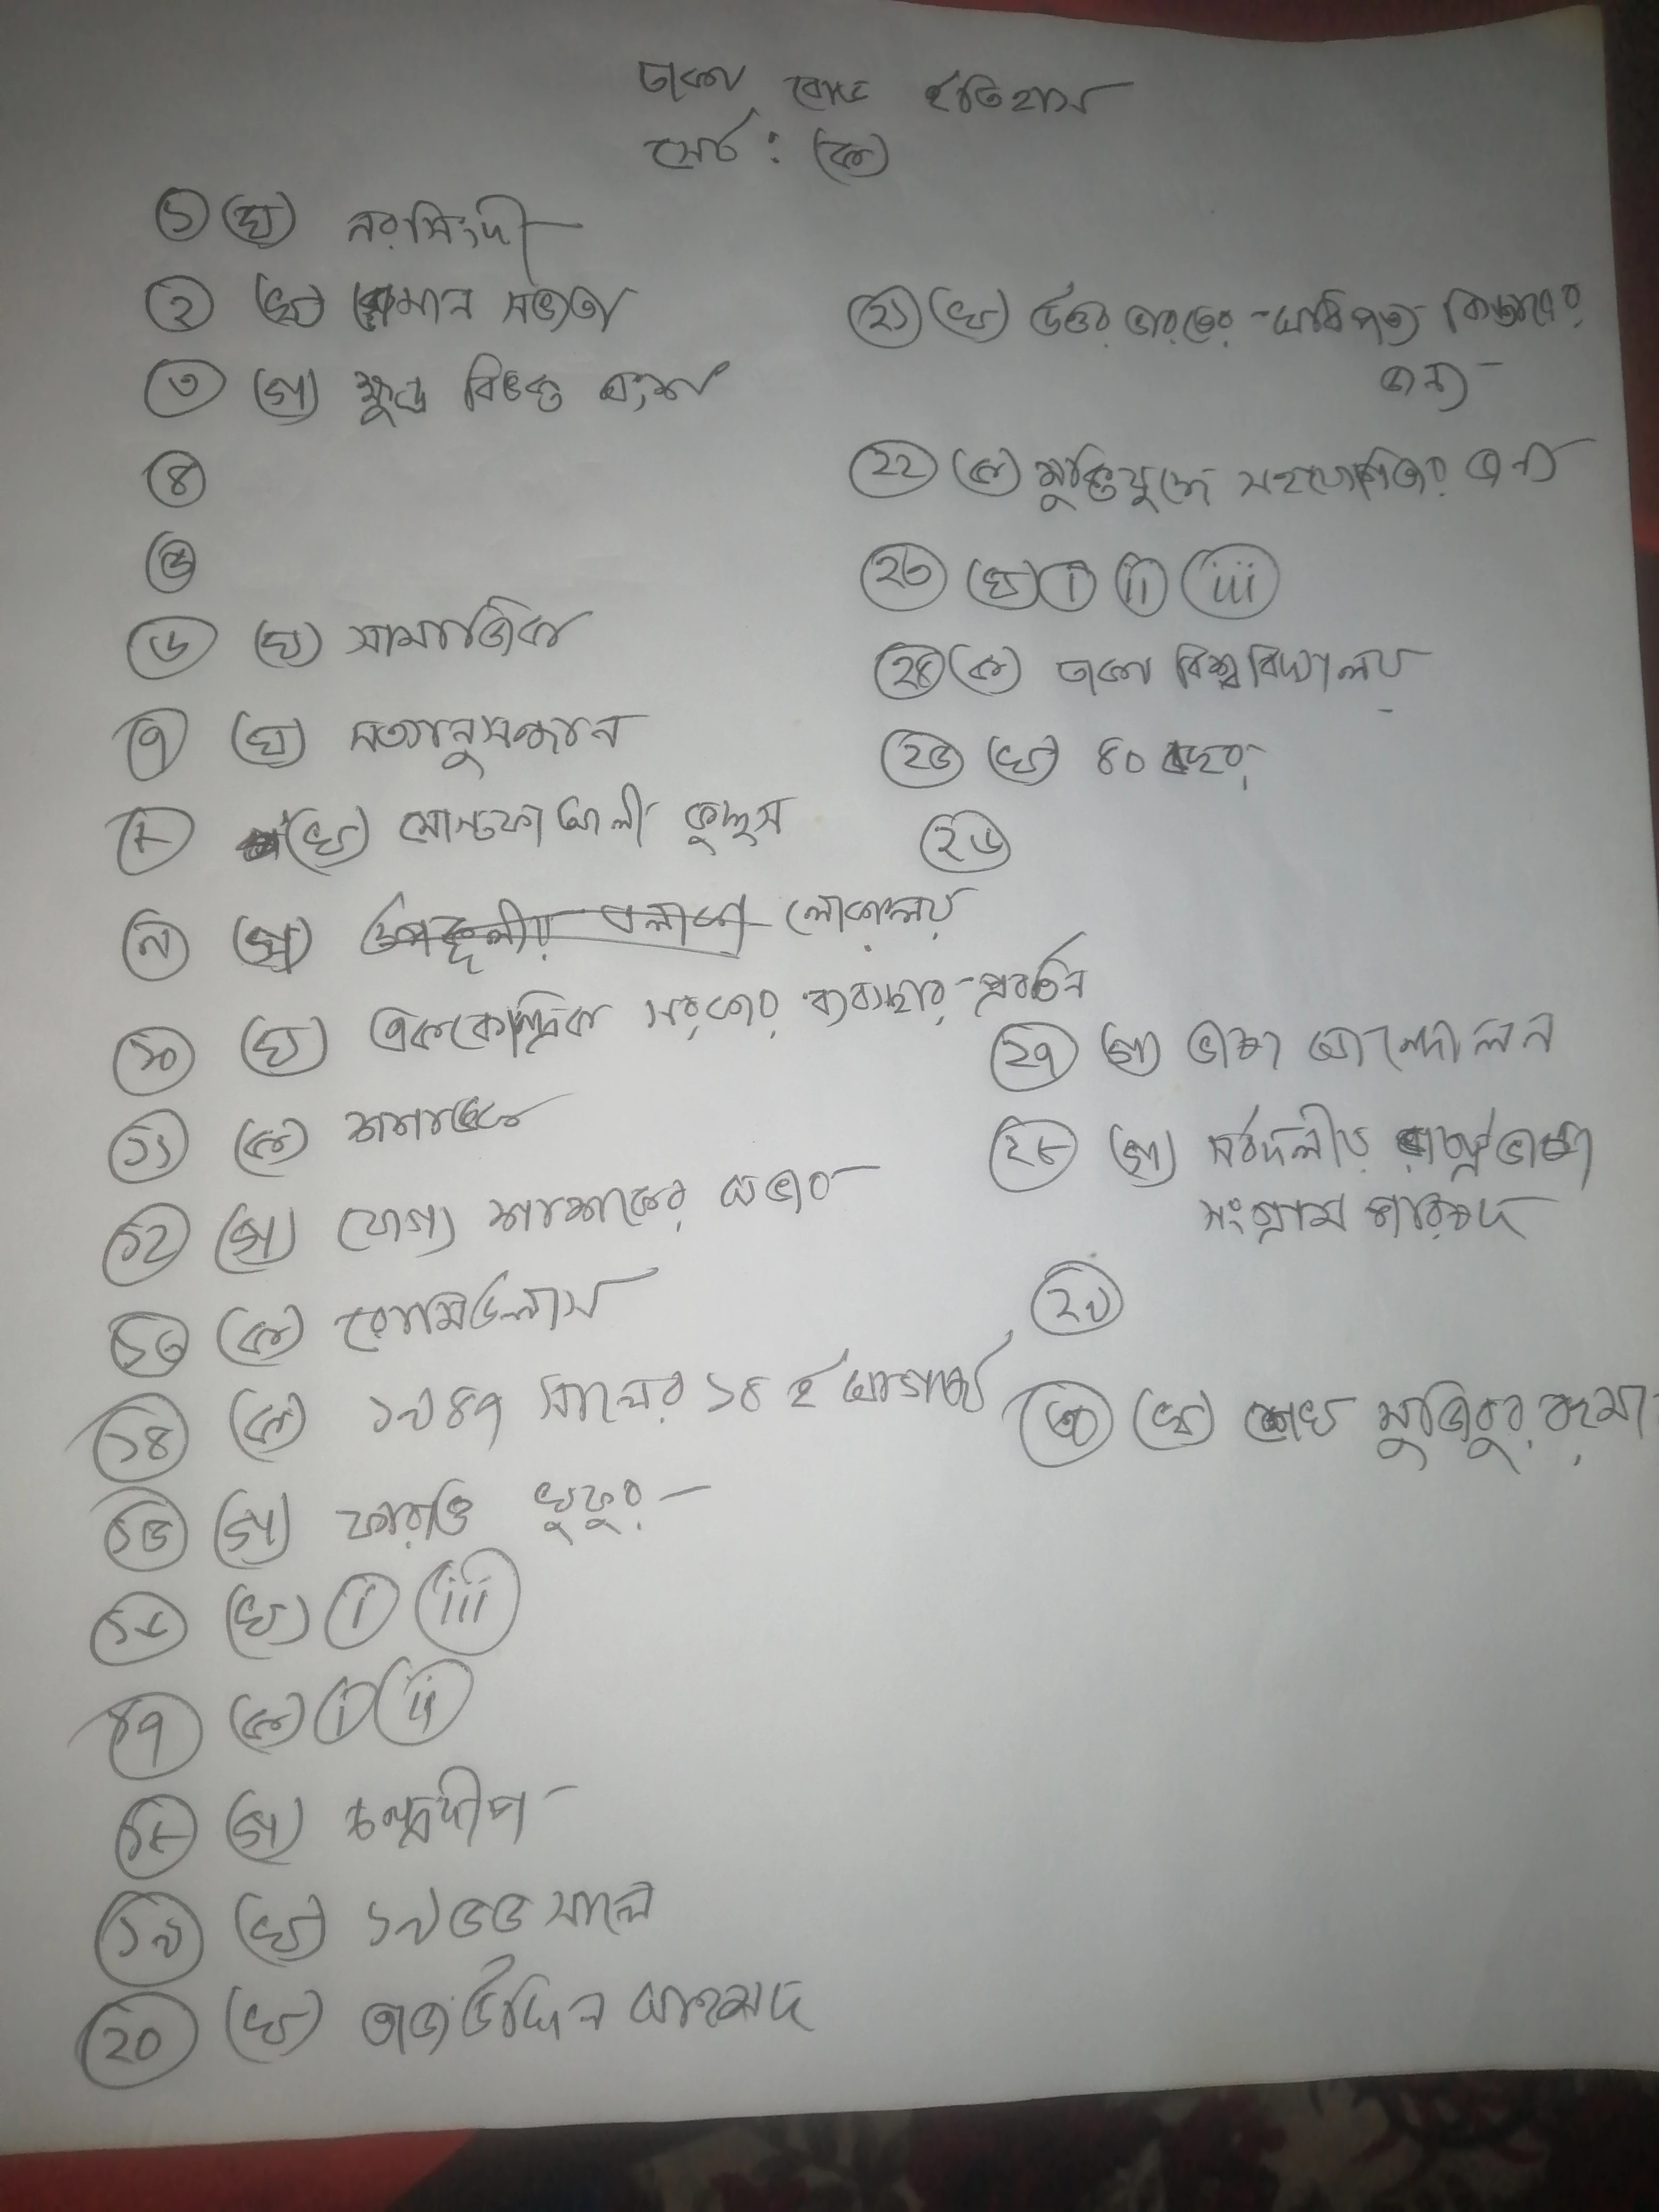 ঢাকা বোর্ড ইতিহাস
সেট : (ক)
১ (ঘ) নরসিংদী
২ (খ) রোমান সভ্যতা
৩ (গ) ক্ষুদ্র বিভক্ত অংশ
৪
৫
৬ (ঘ) সামাজিক
৭ (ঘ) সত্যানুসন্ধান
৮ (খ) মোস্তফা আলী কুদ্দুস
৯ (গ) লোকালয়
১০ (ঘ) এককেন্দ্রিক সরকার ব্যবস্থার প্রবর্তন
১১ (ক) শশাঙ্ক
১২ (গ) যোগ্য শাসকের অভাব
১৩ (ক) রোমিউলাস
১৪ (ক) ১৯৪৭ সালের ১৪ ই আগস্ট
১৫ (গ) ফারাও খুফুর
১৬ (খ) i iii
১৭ (ক) i ii
১৮ (গ) চন্দ্রদ্বীপ
১৯ (খ) ১৯৬৬ সালে
২০ (খ) তাজউদ্দিন আহমদ
২১ (খ) উত্তর ভারতের আধিপত্য বিস্তারের
জন্য
২২ (ক) মুক্তিযুদ্ধে সহযোগিতার জন্য
২৩ (ঘ) i ii iii
২৪ (ক) ঢাকা বিশ্ববিদ্যালয়
২৫ (খ) ৪০ বছর
২৬
২৭ (গ) ভাষা আন্দোলন
২৮ (গ) সর্বদলীয় রাষ্ট্রভাষা
সংগ্রাম পরিষদ
২৯
৩০ (খ) শেখ মুজিবুর রহমা